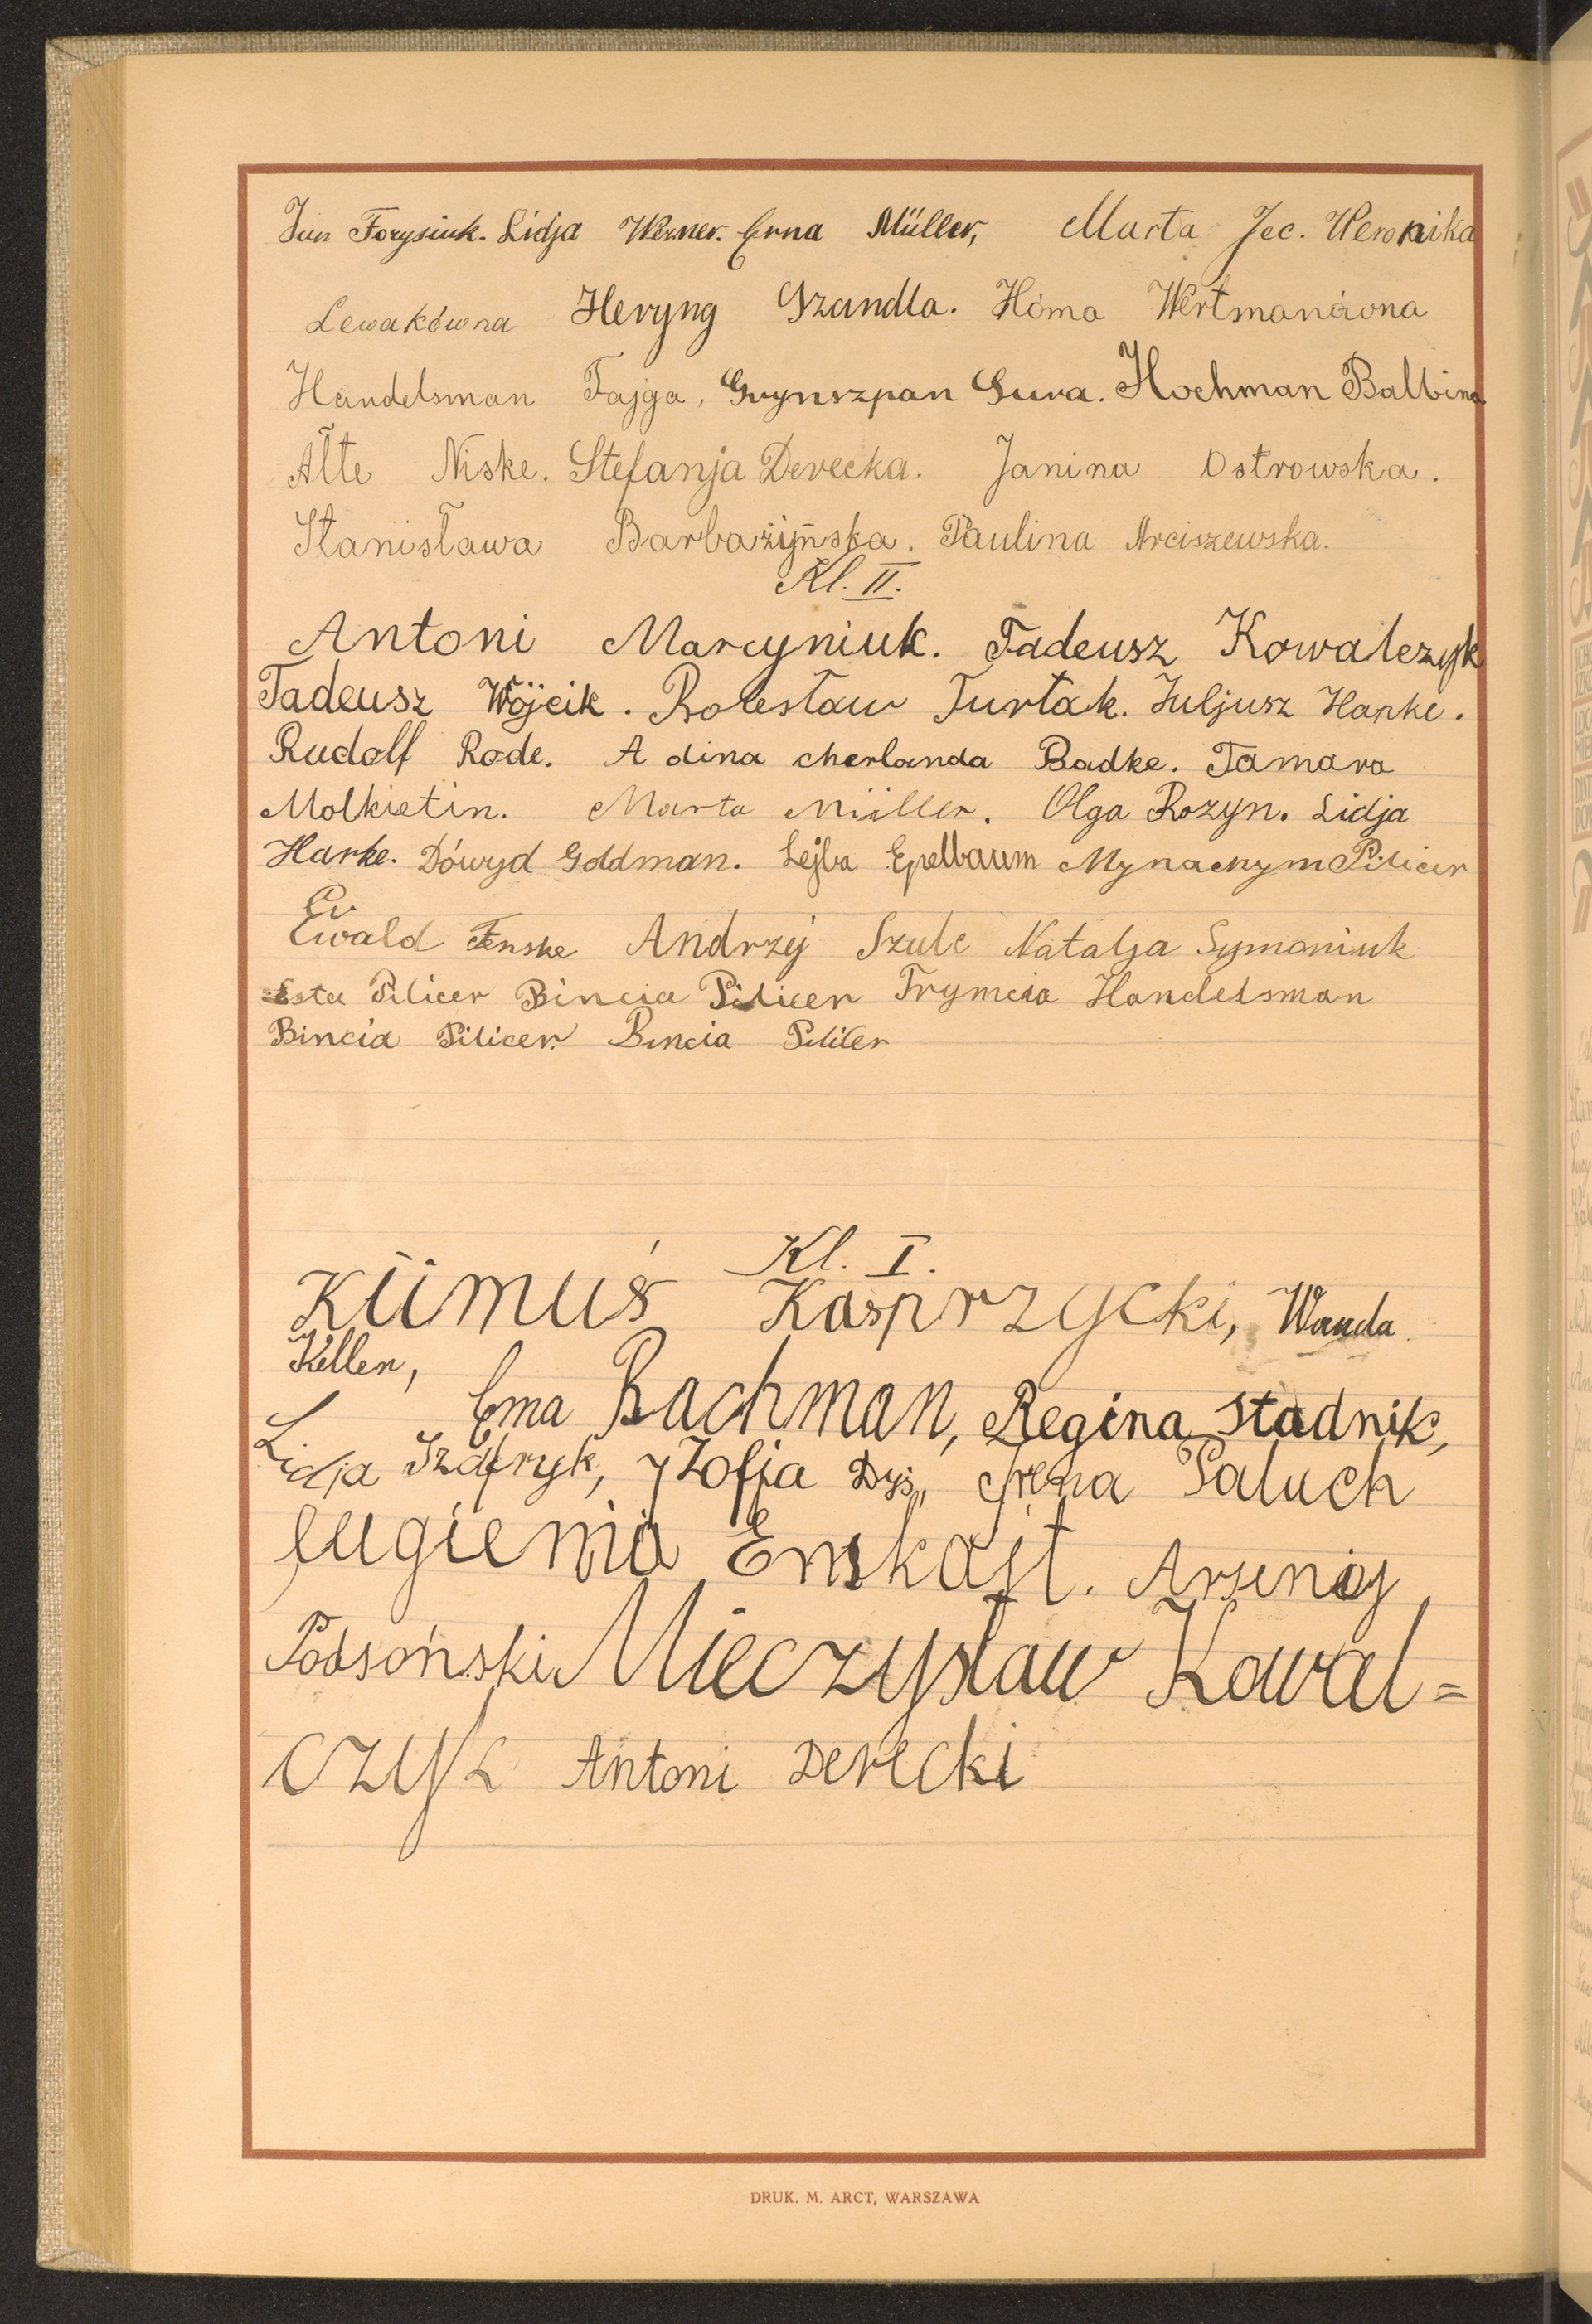 Jan Forysiuk. Lidja Werner. Erna Müller, Marta Jec. Weronika
Lewakówna Heryng Szandla. Hóma Wertmanówna
Handelsman Fajga, Grynszpan Sura. Hochman Balbina
Alte Niske. Stefanja Derecka. Janina Ostrowska.
Stanisława Barbażyńska. Paulina Arciszewska.
Kl. II.
Antoni Marcyniuk. Tadeusz Kowalczyk
Tadeusz Wójcik. Bolesław Turtak. Juljusz Harke.
Rudolf Rode. A dina cherlanda Radke. Tamara
Molkietin. Marta Müller. Olga Rozyn. Lidja
Harke. Dówyd Goldman. Lejba Epelbaum Mynachym Pilicer
Ew
Ewald Fenske Andrzej Szulc Natalja Symoniuk
Esta Pilicer Bincia Pilicer Frymcia Handelsman
Bincia Pilicer. Bincia Pilicer
Kl. I.
Kümuś Kasprzycki, Wanda
Keller,
Ema Bachman, Regina Stadnik,
Lidja Szafryk, Zofja Dyś, Irena Paluch
Eugienia Emskajt. Arsenjij
Podsoński Mieczysław Kowal=
czyk Antoni Derecki
DRUK. M. ARCT, WARSZAWA